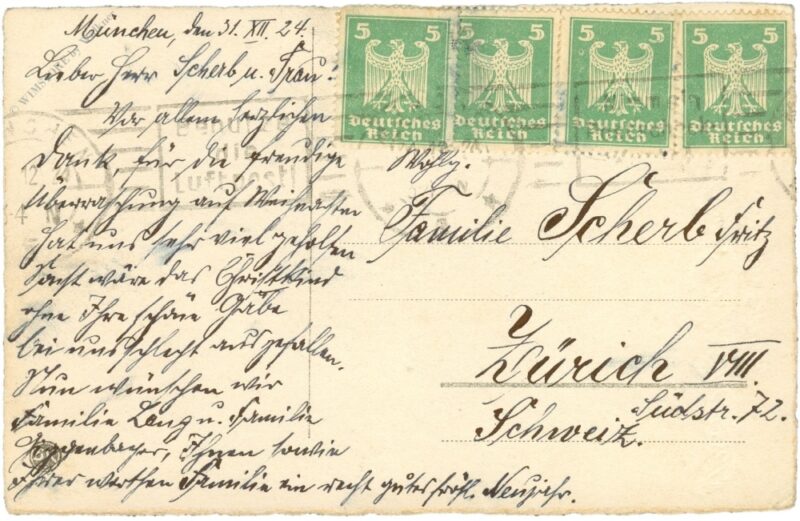 München, den 31. XII. 24.
Lieber Herr Scherb u. Frau!
Vor allem herzlichen
Dank, für die freudige
Überraschung auf Weihnachten
hat uns sehr viel geholfen
sonst wäre das Christkind
ohne Ihre schöne Gabe
bei uns schlecht ausgefallen.
Nun wünschen wir
Familie Lang u. Familie
Ihnen sowie
Ihrer werthen Familie ein recht gutes fröhl. Neujahr.
5 5 5 5 5 5 5 5
Deutsches Reich Deutsches Reich Deutsches Reich Deutsches Reich
Benützt
die
Luftpost!
Wohlg.
Familie Scherb Fritz
Zürich VIII.
Südstr. 72.
Schweiz.